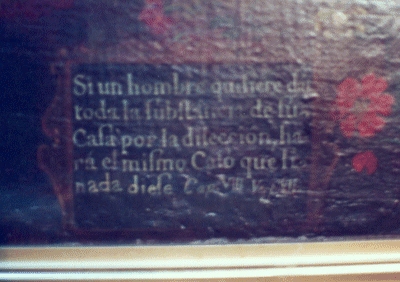 Si un hombre quiſiere dar
toda la ſubſtancia de ſu
Caſa por la dileccion, ha-
rá el miſmo Caſo que ſi
nada dieſe